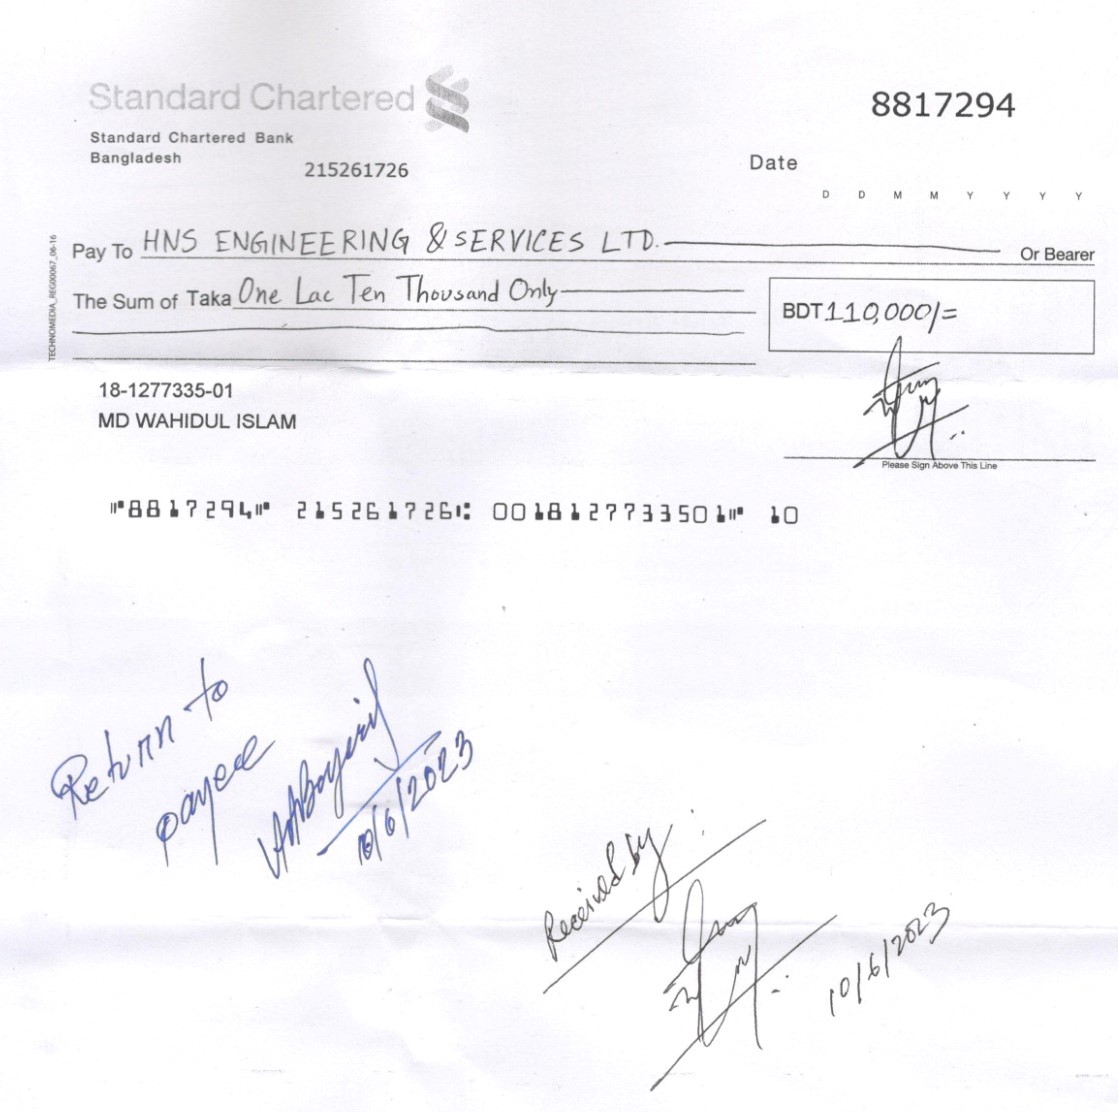 Standard Chartered
8817294
Standard Chartered Bank
Bangladesh
215261726
Date
D D M M Y Y Y Y
TECHNOMEDIA_REG00067_06-16
Pay To HNS ENGINEERING & SERVICES LTD. Or Bearer
The Sum of Taka One Lac Ten Thousand Only
BDT 110,000/=
18-1277335-01
MD WAHIDUL ISLAM
Please Sign Above This Line
⑈8817294⑈ 215261726⑆ 0018127733501⑈ 10
Return to
payee
10/6/2023
Received by
10/6/2023